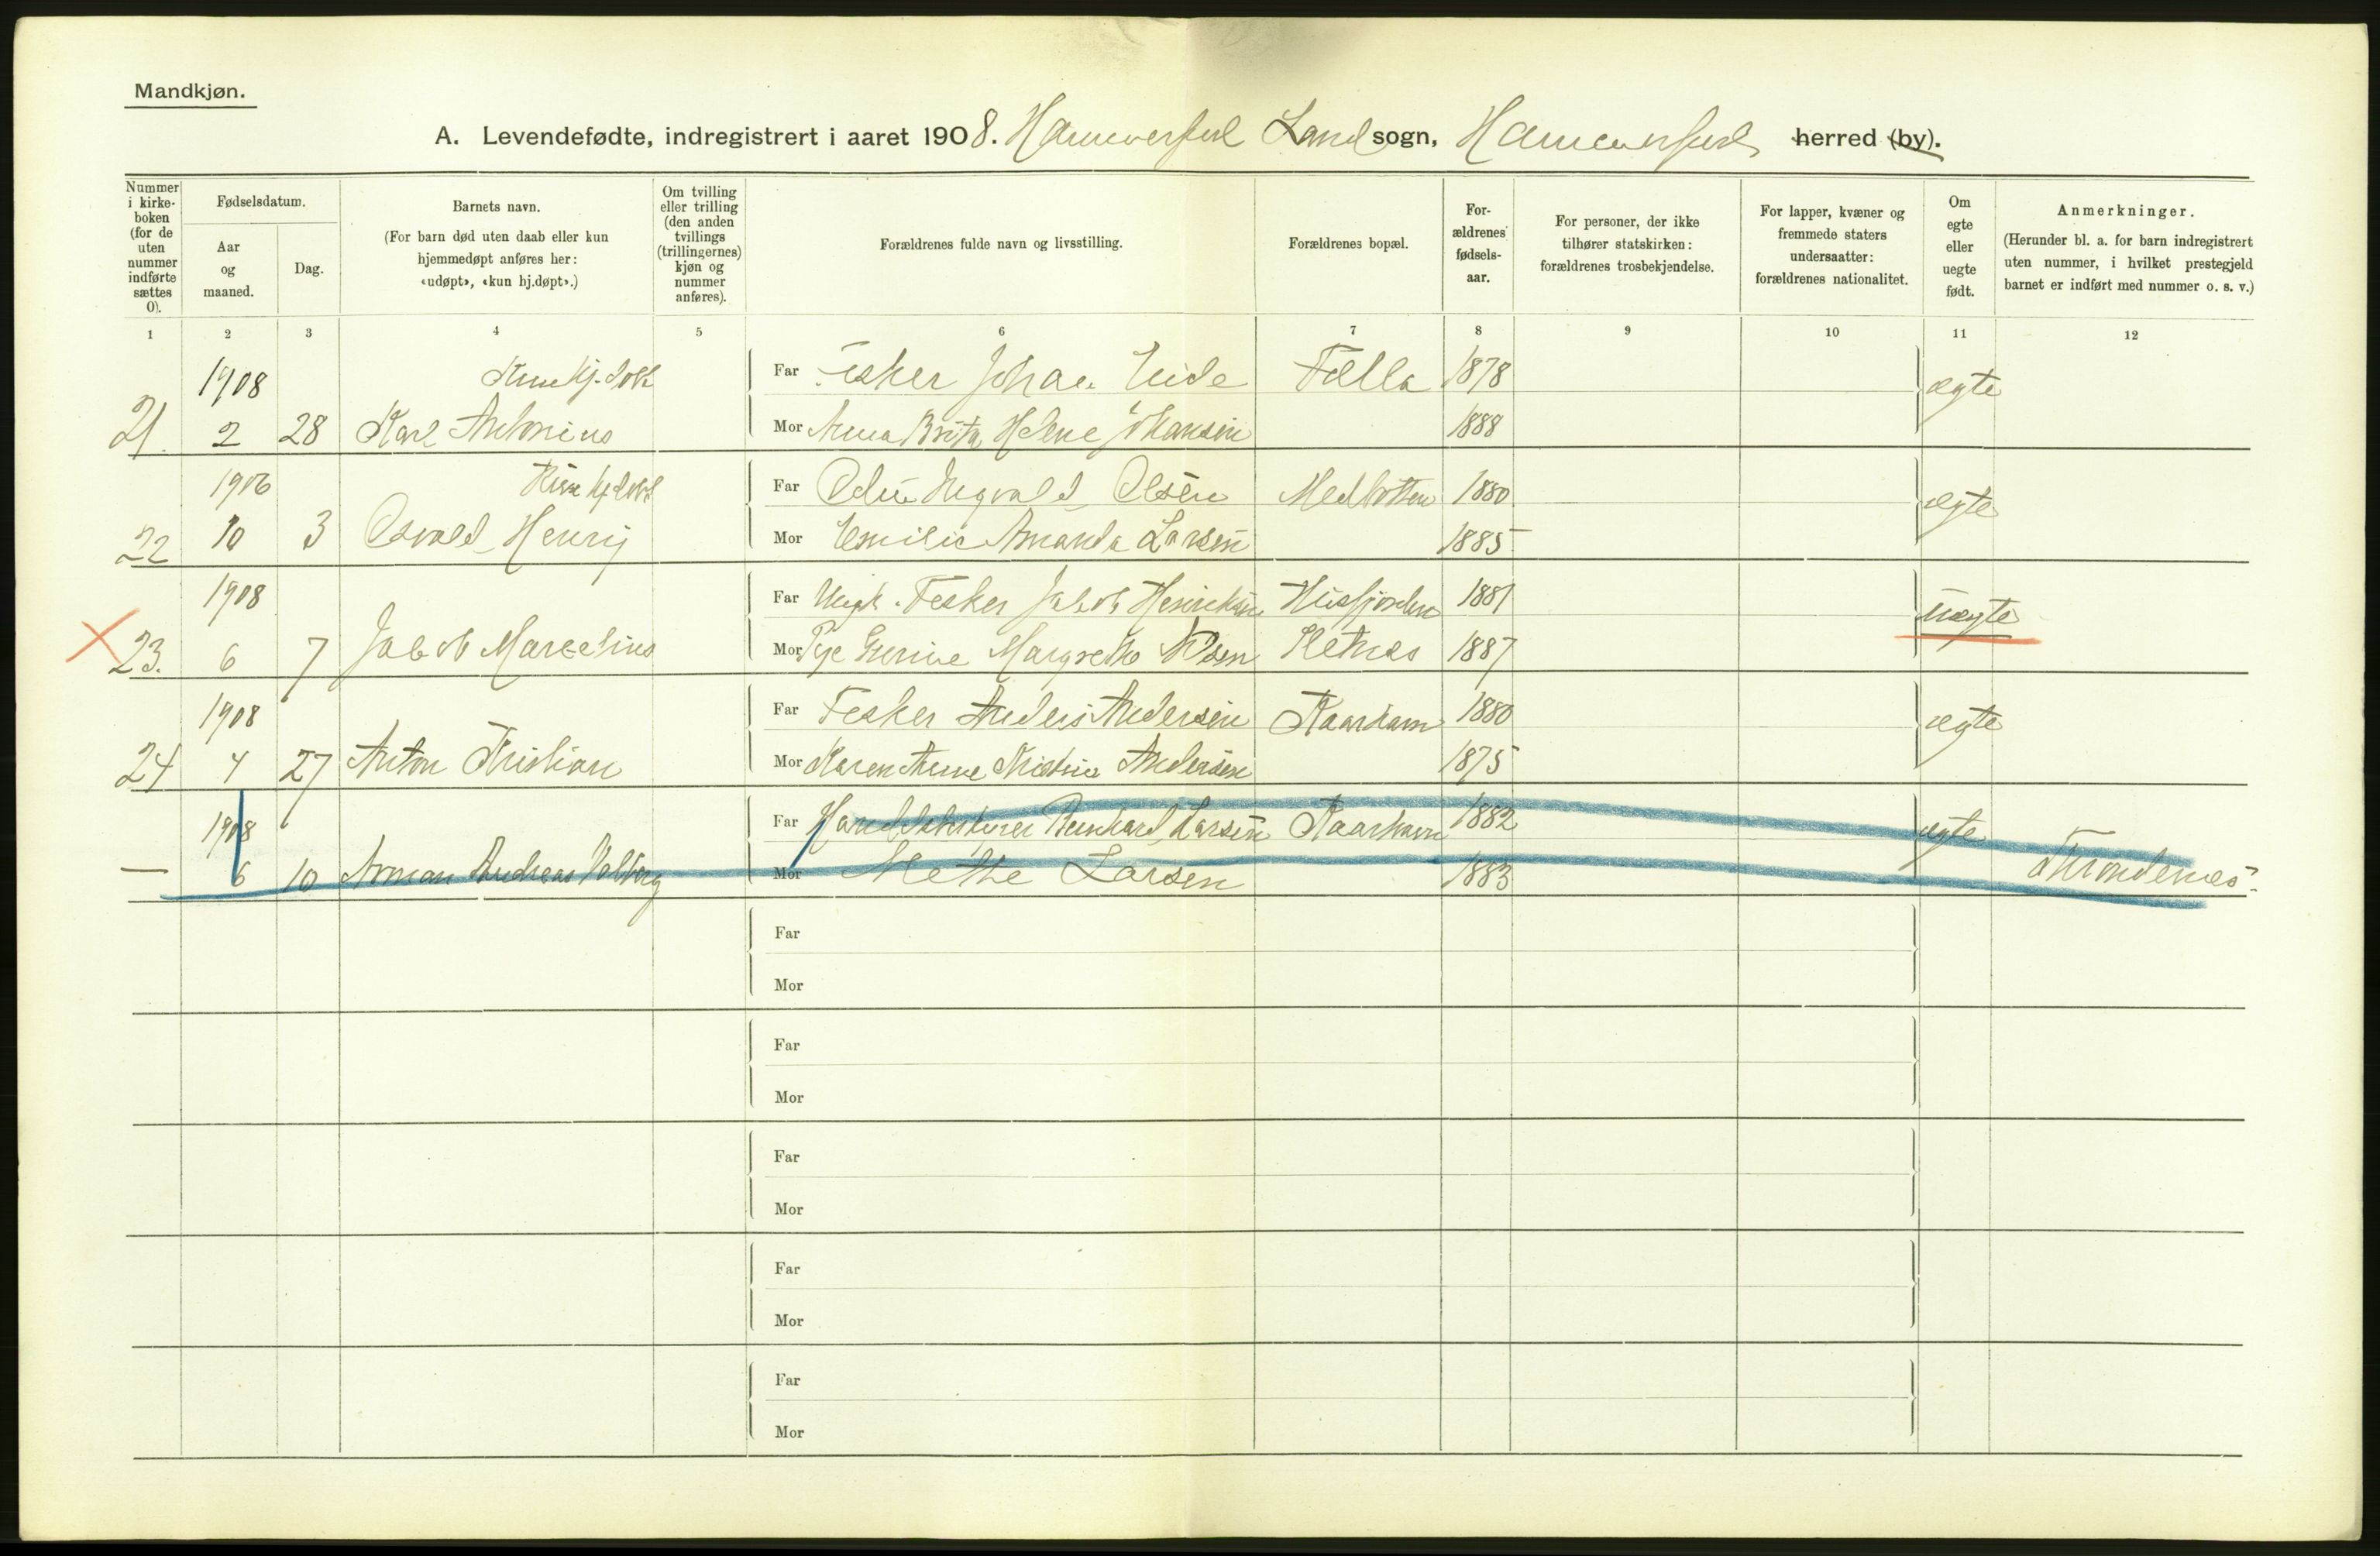 Mandkjøn.
A. Levendefødte, indregistrert i aaret 1908. Hammerfest Landsogn, Hammerfest herred (by).
Nummer i kirkeboken (for de uten nummer indførte sættes 0).
Fødselsdatum.
Aar og maaned.
Dag.
Barnets navn.
(For barn død uten daab eller kun hjemmedøpt anføres her: «udøpt», «kun hj.døpt».)
Om tvilling eller trilling (den anden tvillings (trillingernes) kjøn og nummer anføres).
Forældrenes fulde navn og livsstilling.
Forældrenes bopæl.
For-ældrenes fødsels-aar.
For personer, der ikke tilhører statskirken: forældrenes trosbekjendelse.
For lapper, kvæner og fremmede staters undersaatter: forældrenes nationalitet.
Om egte eller uegte født.
Anmerkninger.
(Herunder bl. a. for barn indregistrert uten nummer, i hvilket prestegjeld barnet er indført med nummer o. s. v.)
1 2 3 4 5 6 7 8 9 10 11 12
1908 Kun hj. døbt Far Fisker Johan Eide Fella 1878 ægte
21. 2 28 Karl Antonius Mor Anna Brita Helene Johansen 1888
1906 Far Odin Ingvald Olsen Medbotten 1880 ægte
22 10 3 Osvald Henry Mor Emilie Amanda Larsen 1885
1908 Far Ungk. Fisker Jakob Henriksen Husfjorden 1881 uægte
23. 6 7 Jakob Marcelius Mor Pige Margrethe Sletnes 1887
1908 Far Fisker Anders Andersen Kaarhavn 1880 ægte
24 4 27 Anton Kristian Mor Karen Anne Andersen 1875
1908 Far Bernhard Larsen Kaarhavn 1882 egte
— 6 10 Andreas Valborg Mor Mette Larsen 1883 Throndenes.
Far
Mor
Far
Mor
Far
Mor
Far
Mor
Far
Mor